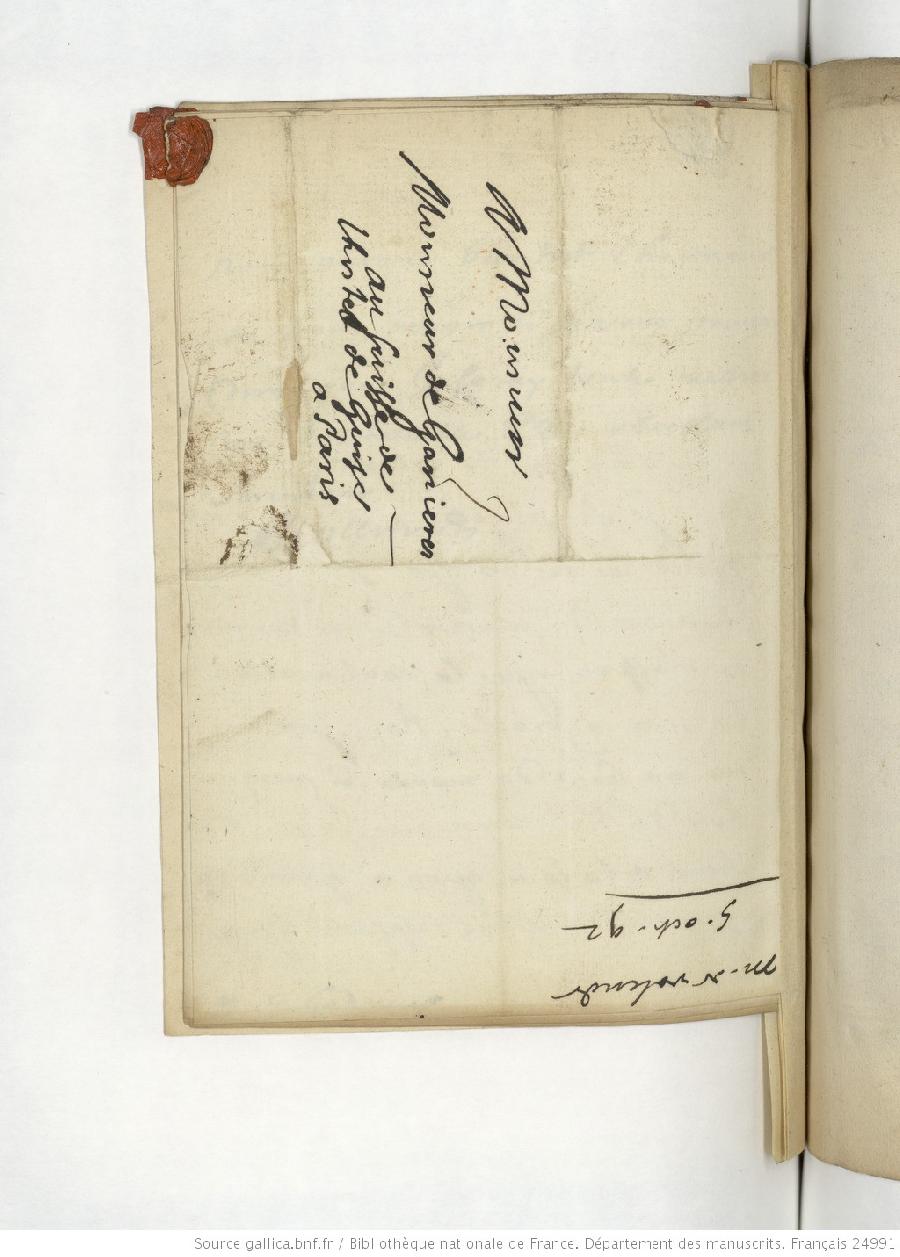 A Monsieur
Monsieur de Ganieres
au suisse de
lhostel de Guise
a Paris
5. oct. 92
Source gallica.bnf.fr / Bibliothèque nationale de France. Département des manuscrits. Français 24991